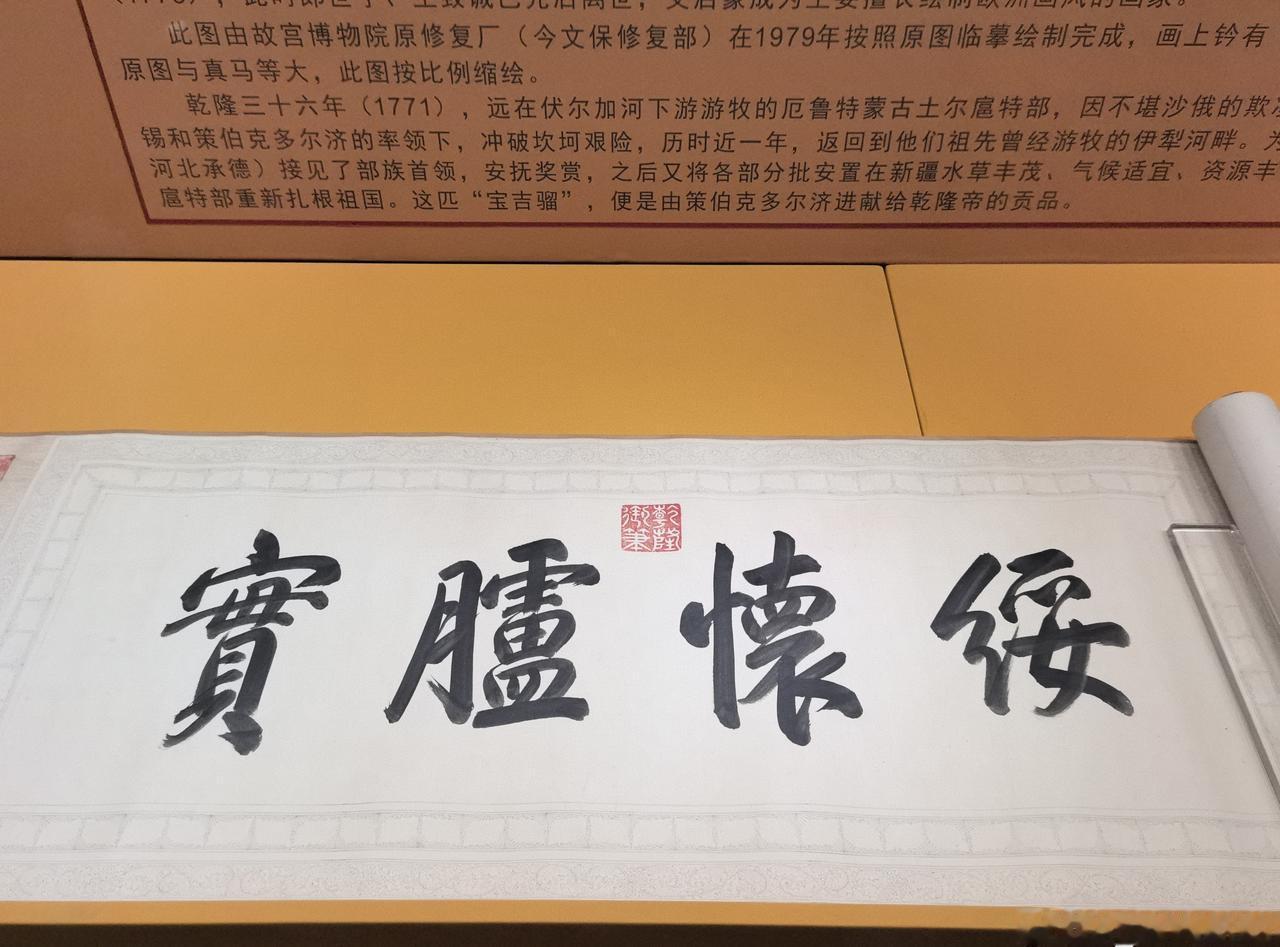 此时郎世宁、王致诚已先后离世，艾启蒙成为主要擅长绘制欧洲画风的画家。
此图由故宫博物院原修复厂（今文保修复部）在1979年按照原图临摹绘制完成，画上钤有
原图与真马等大，此图按比例缩绘。
乾隆三十六年（1771），远在伏尔加河下游游牧的厄鲁特蒙古土尔扈特部，因不堪沙俄的欺
锡和策伯克多尔济的率领下，冲破坎坷艰险，历时近一年，返回到他们祖先曾经游牧的伊犁河畔。为
河北承德）接见了部族首领，安抚奖赏，之后又将各部分批安置在新疆水草丰茂、气候适宜、资源丰
扈特部重新扎根祖国。这匹“宝吉骝”，便是由策伯克多尔济进献给乾隆帝的贡品。
綏懷臚實
乾隆御筆